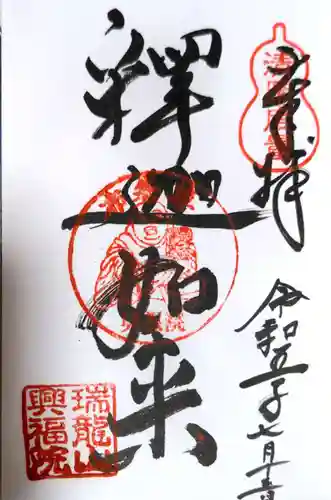 奉拝
令和五年七月十吉
釋迦如来
瑞龍山
興福院